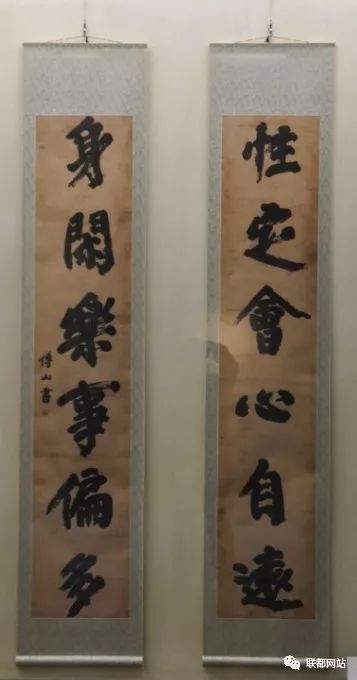 性定會心自遠
身閑樂事偏多
傅山書
联都网站